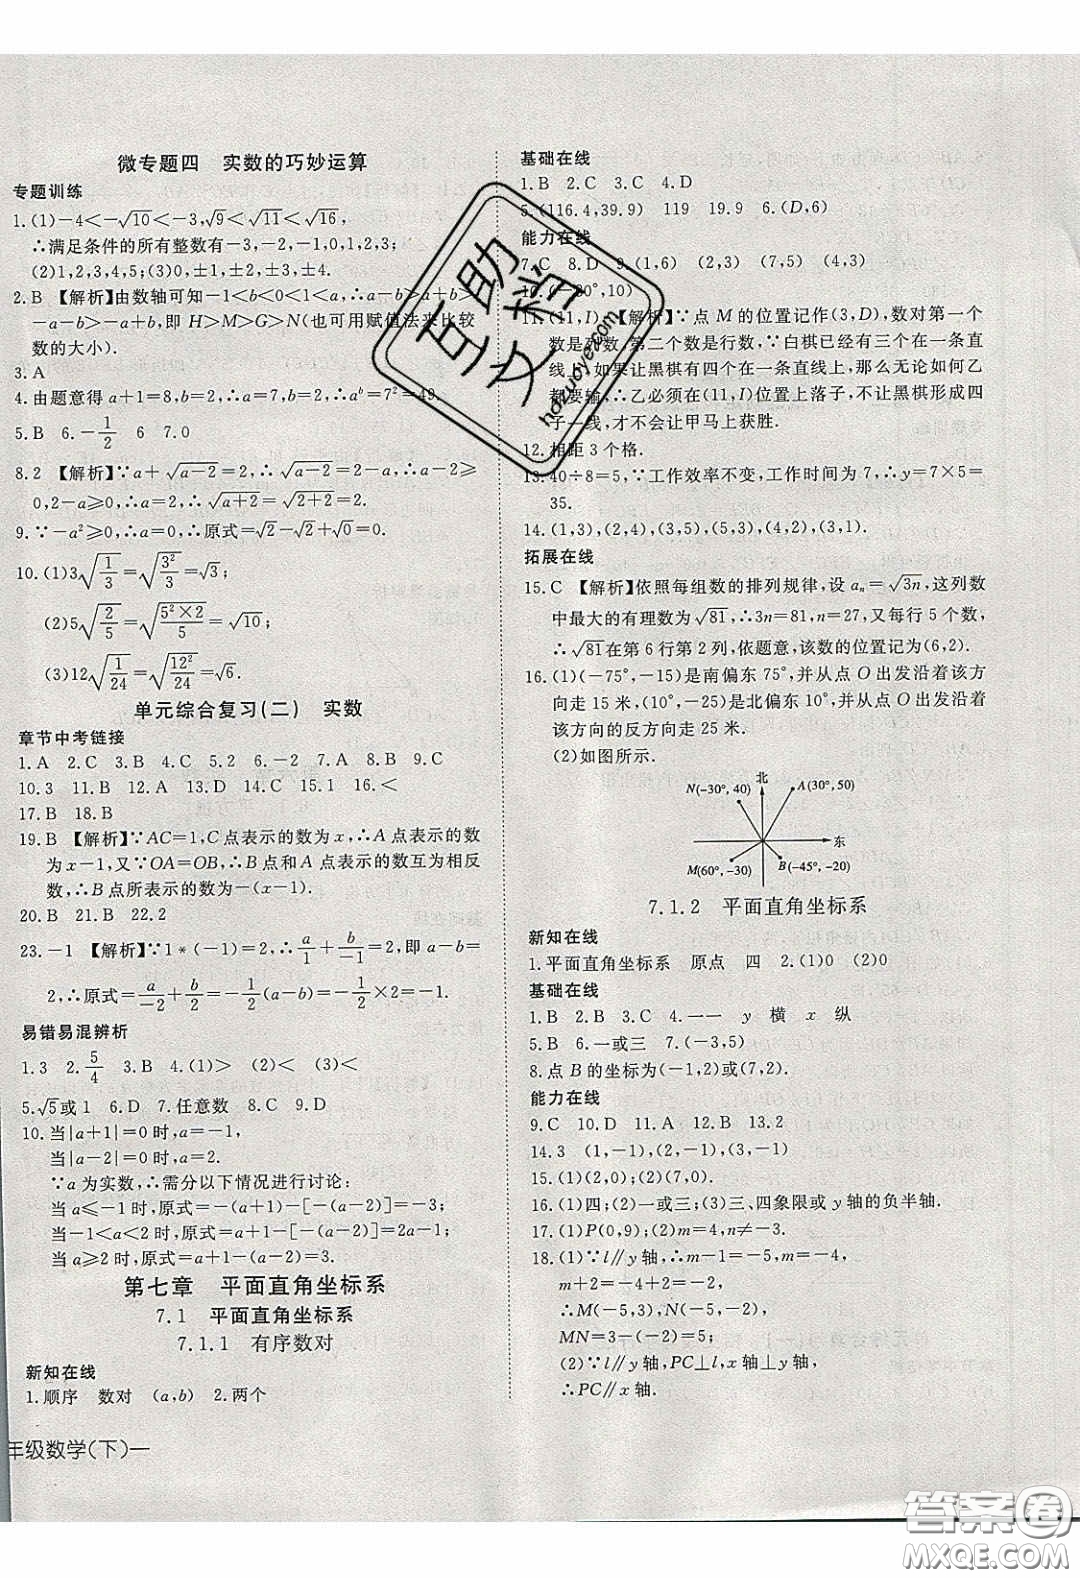 微专题四 实数的巧妙运算
专题训练
1.(1)-4<-√10<-3,√9<√11<√16,
∴满足条件的所有整数有-3,-2,-1,0,1,2,3.
(2)1,2,3,4,5;(3)0,±1,±2,±3,±4.
2.B 【解析】由数轴可知-1<b<0<1<a,∴a-b>a+b>
-a-b>-a+b,即 H>M>G>N(也可用赋值法来比较
数的大小).
3.A
4.由题意得 a+1=8,b=2,∴a=7,b=2,∴a^b=7²=49.
5.B 6.-1/2 6 7.0
8.2 【解析】∵a+√(a-2)=2,∴√(a-2)=2-a,∴a-2≥
0,2-a≥0,∴a=2,∴√(a+2)=√(2+2)=2.
9.∵-a²≥0,∴a=0,∴原式=√2-√2+√0=0.
10.(1)3√(1/3)=√(3²/3)=√3;
(2)5√(2/5)=√((5²×2)/5)=√10;
(3)12√(1/24)=√(12²/24)=√6.
单元综合复习(二) 实数
章节中考链接
1.A 2.C 3.B 4.C 5.2 6.-2 7.C 8.B 9.C
10.3 11.B 12.A 13.D 14.C 15.1 16.<
17.B 18.B
19.B 【解析】∵AC=1,C 点表示的数为 x,∴A 点表示的数
为 x-1,又∵OA=OB,∴B 点和 A 点表示的数互为相反
数,∴B 点所表示的数为-(x-1).
20.B 21.B 22.2
23.-1 【解析】∵1*(-1)=2,∴a/1+b/-1=2,即 a-b=
2,∴原式=a/-2+b/2=-1/2(a-b)=-1/2×2=-1.
易错易混辨析
1.3 2.5/4 3.B 4.(1)> (2)< (3)<
5.√5或 1 6.D 7.任意数 8.C 9.D
10.当|a+1|=0时,a=-1,
当|a-2|=0时,a=2.
∵a 为实数,∴需分以下情况进行讨论:
当 a≤-1时,原式=-(a+1)-[-(a-2)]=-3;
当-1<a<2 时,原式=(a+1)-[-(a-2)]=2a-1;
当 a≥2 时,原式=(a+1)-(a-2)=3.
第七章 平面直角坐标系
7.1 平面直角坐标系
7.1.1 有序数对
新知在线
1.顺序 数对 (a,b) 2.两个
年级数学(下)一
基础在线
1.B 2.C 3.C 4.D
5.(116.4,39.9) 119 19.9 6.(D,6)
能力在线
7.C 8.D 9.(1,6) (2,3) (5,7) (4,5)
10.(-20°,10)
11.(11,I) 【解析】∵点 M 的位置记作(3,D),数对第一个
数是列数,第二个数是行数,∵白棋已经有三个在一条直
线上,如果让黑棋有四个在一条直线上,那么无论如何乙
都要输,∴乙必须在(11,I)位置上落子,不让黑棋形成四
子一线,才不会让甲马上获胜.
12.相距 3 个格.
13.40÷8=5,∵工作效率不变,工作时间为 7,∴y=7×5=
35.
14.(1,3),(2,4),(3,5),(5,3),(4,2),(3,1).
拓展在线
15.C 【解析】依照每组数的排列规律,设 aₙ=√3n,这列数
中最大的有理数为 √81,∴3n=81,n=27,又每行 5 个数,
∴√81在第 6 行第 2 列,依题意,该数的位置记为(6,2).
16.(1)(-75°,-15)是南偏东 75°,并从点 O 出发沿着该方
向走 15 米,(10°,-25)是北偏东 10°,并从点 O 出发沿着
该方向的反方向走 25 米.
(2)如图所示.
北
N(-30°,40)
A(30°,50)
东
M(60°,-30)
B(-45°,-20)
7.1.2 平面直角坐标系
新知在线
1.平面直角坐标系 原点 四 2.(1)0 (2)0
基础在线
1.B 2.B 3.C 4.一一 y 横 x 纵
5.B 6.一或三 7.(-3,5)
8.点 B 的坐标为(-1,2)或(7,2).
能力在线
9.C 10.D 11.A 12.B 13.2
14.3 (1,-1),(-1,2)
15.(1)(2,0);(2)(7,0).
16.(1)四;(2)一或三;(3)三、四象限或 y 轴的负半轴.
17.(1)P(0,9);(2)m=4,n≠-3.
18.(1)∵l∥y 轴,∴m-1=-5,m=-4,
m+2=-4+2=-2,
∴M(-5,3),N(-5,-2),
MN=3-(-2)=5;
(2)∵l∥y 轴,PC⊥l,x轴⊥y 轴,
∴PC∥x 轴.
互助文档
hdzuoye.com
答案圈
MXQE.COM